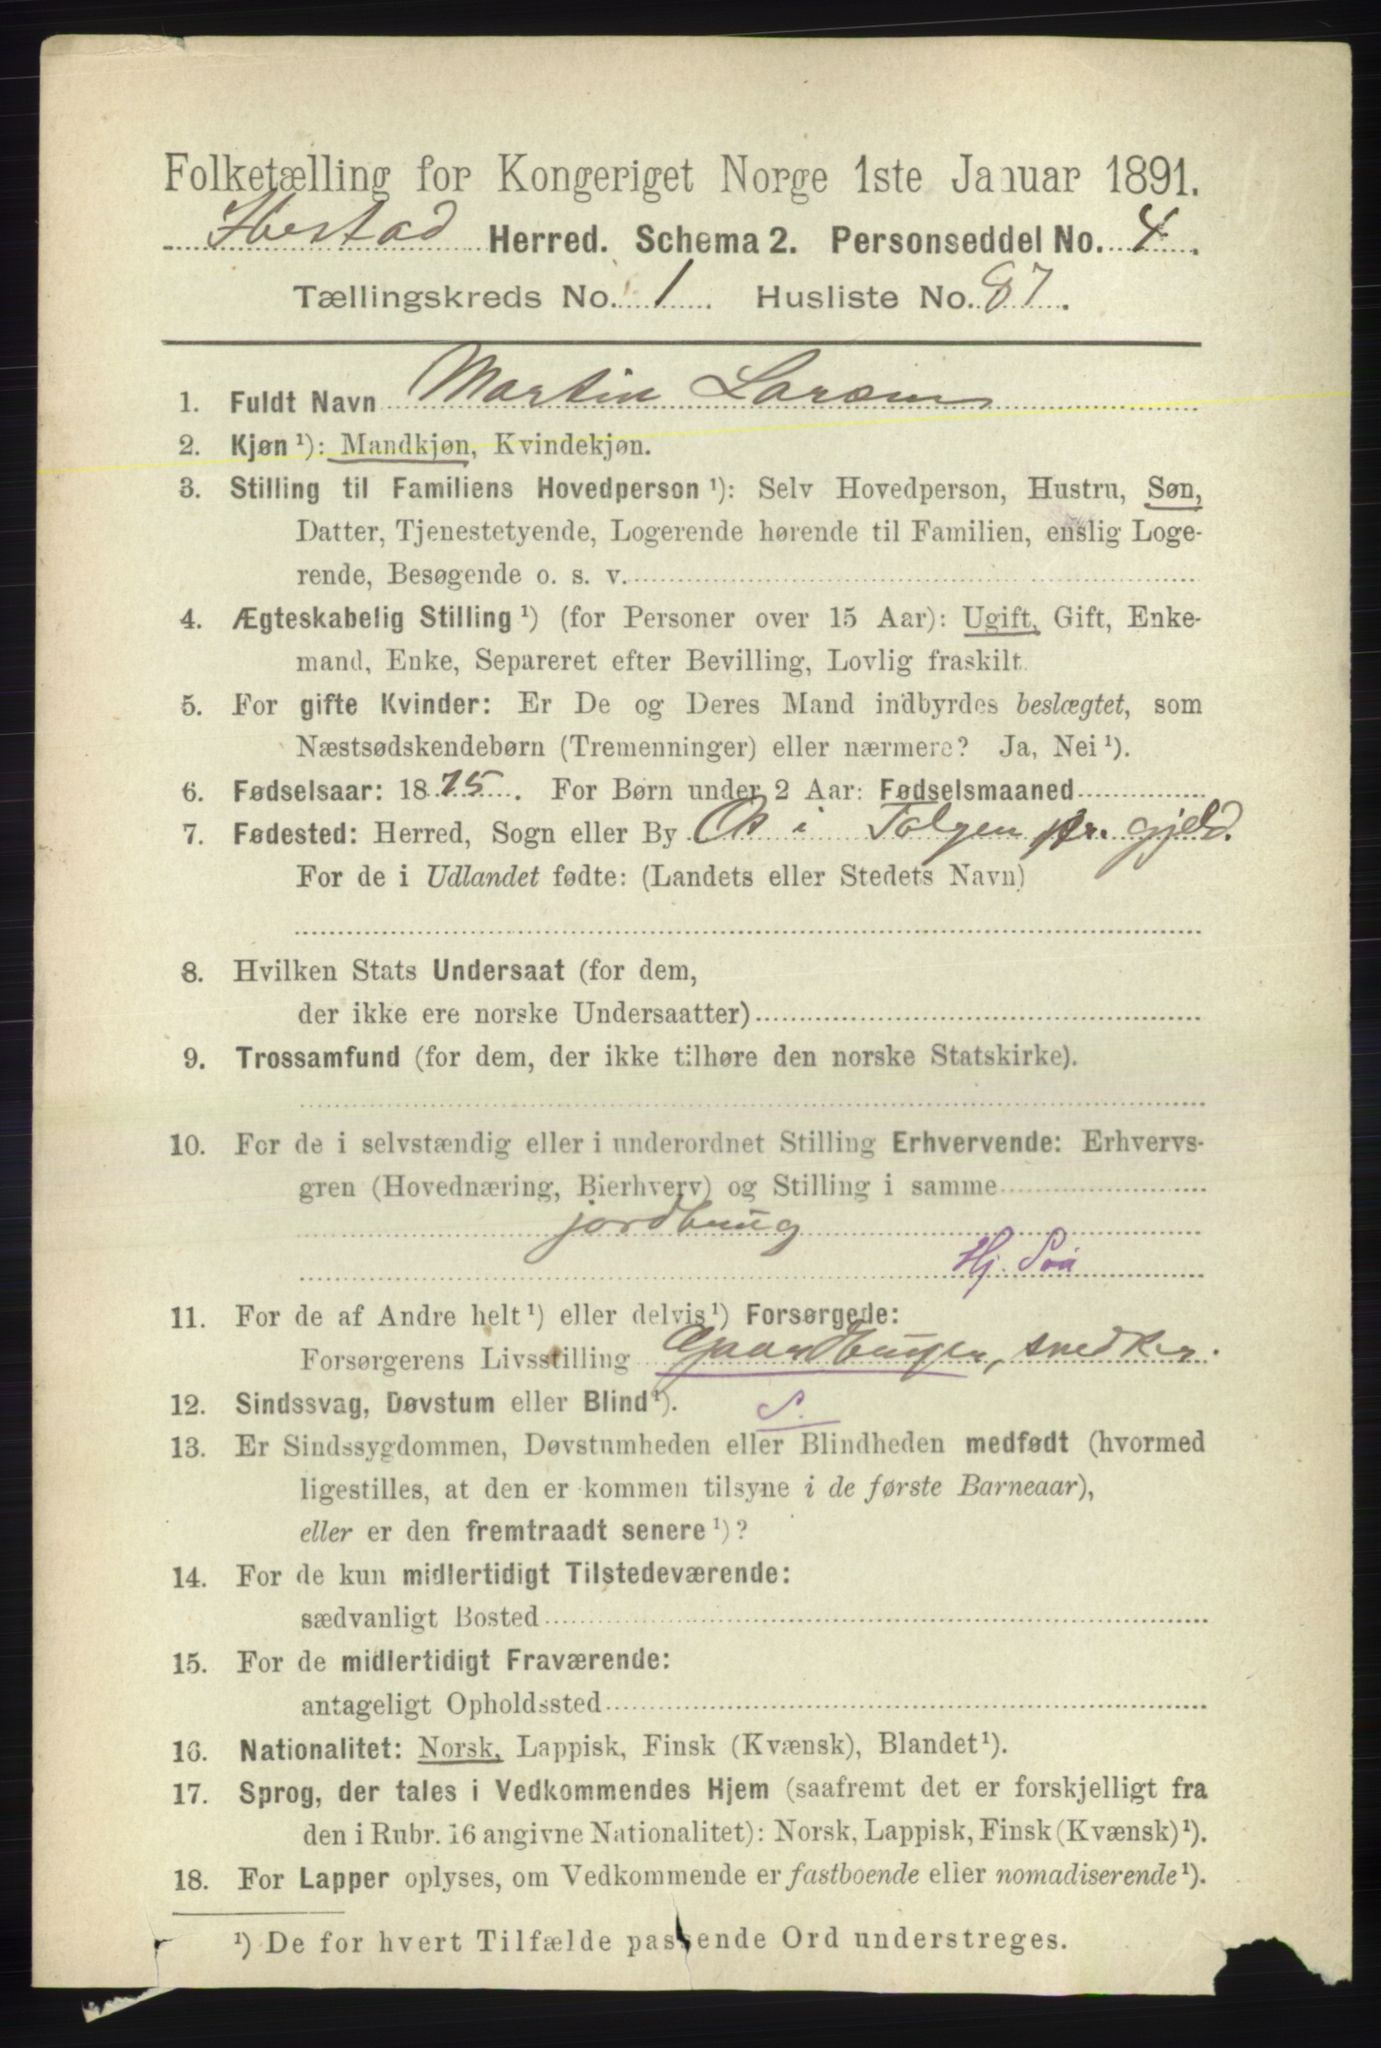 Folketælling for Kongeriget Norge 1ste Januar 1891.
Ibestad Herred. Schema 2. Personseddel No. 4.
Tællingskreds No. 1. Husliste No. 87.
1. Fuldt Navn Martin Larsen
2. Kjøn ¹): Mandkjøn, Kvindekjøn.
3. Stilling til Familiens Hovedperson ¹): Selv Hovedperson, Hustru, Søn,
Datter, Tjenestetyende, Logerende hørende til Familien, enslig Loge-
rende, Besøgende o. s. v.
4. Ægteskabelig Stilling ¹) (for Personer over 15 Aar): Ugift, Gift, Enke-
mand, Enke, Separeret efter Bevilling, Lovlig fraskilt.
5. For gifte Kvinder: Er De og Deres Mand indbyrdes beslægtet, som
Næstsødskendebørn (Tremenninger) eller nærmere? Ja, Nei ¹).
6. Fødselsaar: 1875. For Børn under 2 Aar: Fødselsmaaned
7. Fødested: Herred, Sogn eller By Os i Tolgen pr. gjeld.
For de i Udlandet fødte: (Landets eller Stedets Navn)
8. Hvilken Stats Undersaat (for dem,
der ikke ere norske Undersaatter)
9. Trossamfund (for dem, der ikke tilhøre den norske Statskirke).
10. For de i selvstændig eller i underordnet Stilling Erhvervende: Erhvervs-
gren (Hovednæring, Bierhverv) og Stilling i samme
jordbrug
Hj. Søn
11. For de af Andre helt ¹) eller delvis ¹) Forsørgede:
Forsørgerens Livsstilling Gaardbruger, snedker.
12. Sindssvag, Døvstum eller Blind ¹). S.
13. Er Sindssygdommen, Døvstumheden eller Blindheden medfødt (hvormed
ligestilles, at den er kommen tilsyne i de første Barneaar),
eller er den fremtraadt senere ¹)?
14. For de kun midlertidigt Tilstedeværende:
sædvanligt Bosted
15. For de midlertidigt Fraværende:
antageligt Opholdssted
16. Nationalitet: Norsk, Lappisk, Finsk (Kvænsk), Blandet ¹).
17. Sprog, der tales i Vedkommendes Hjem (saafremt det er forskjelligt fra
den i Rubr. 16 angivne Nationalitet): Norsk, Lappisk, Finsk (Kvænsk) ¹).
18. For Lapper oplyses, om Vedkommende er fastboende eller nomadiserende ¹).
¹) De for hvert Tilfælde passende Ord understreges.